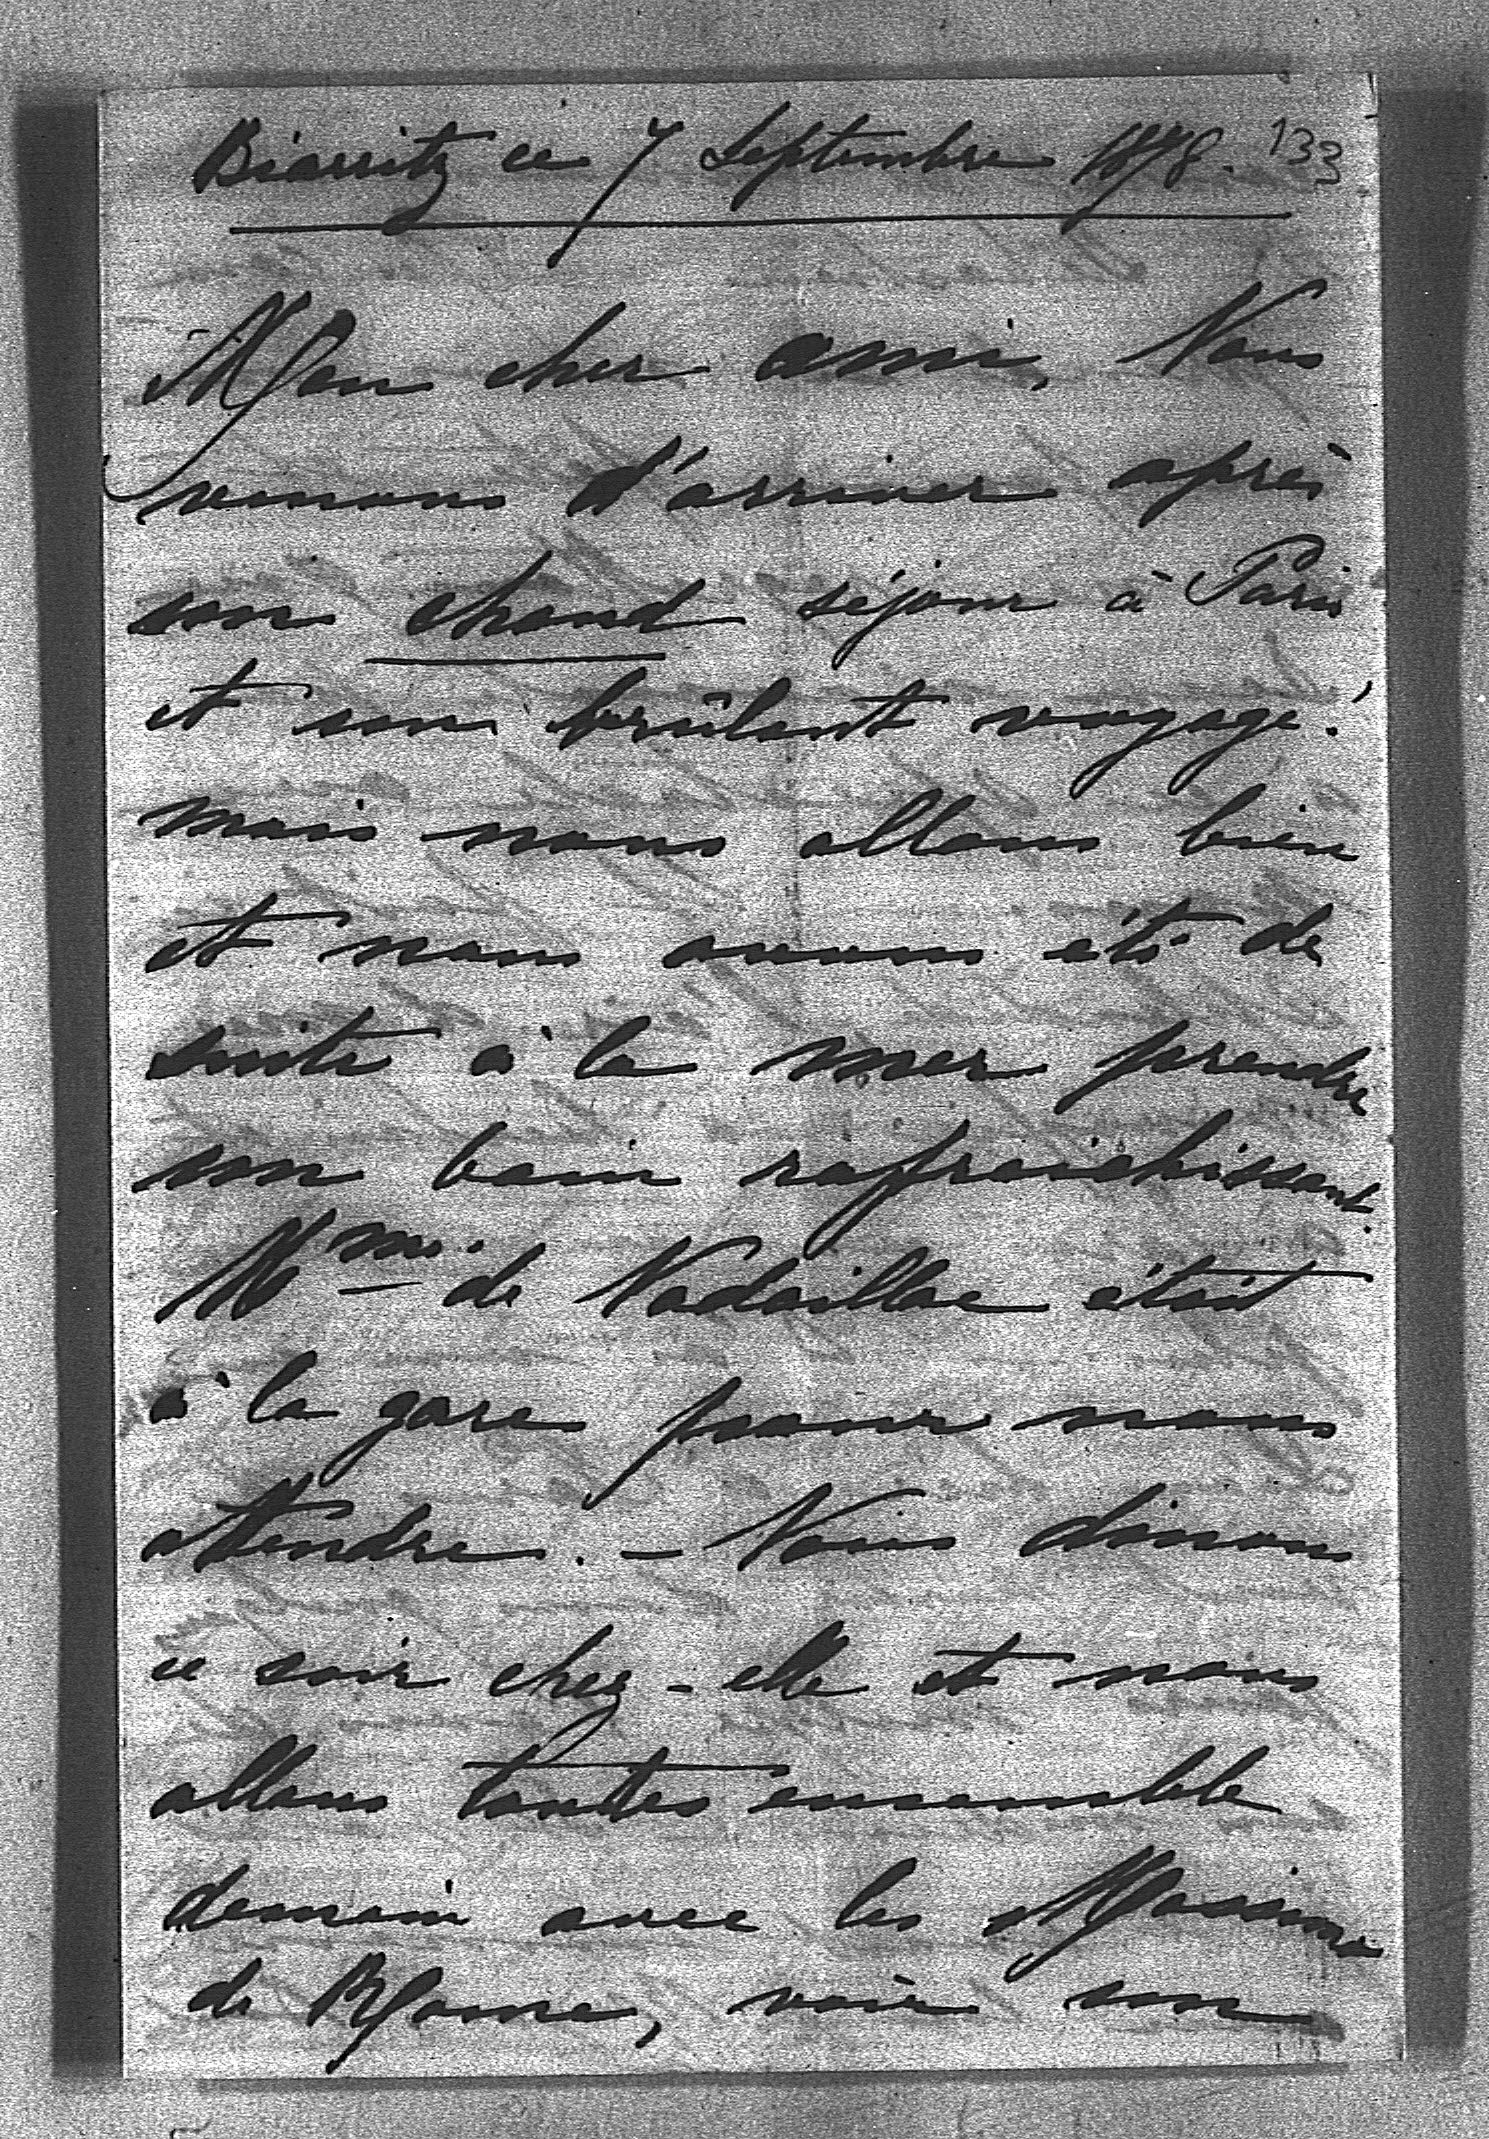 Biarritz ce 7 Septembre 1898. 133
Mon cher ami, Nous
venons d'arriver après
un chaud séjour à Paris
et un brûlant voyage!
mais nous allons bien
et nous avons été de
suite à la mer prendre
un bain rafraichissant.
Mme. de Nadaillac était
à la gare pour nous
attendre. - Nous dinons
ce soir chez-elle et nous
allons toutes ensemble
demain avec les Massimo
de Rome, voir un